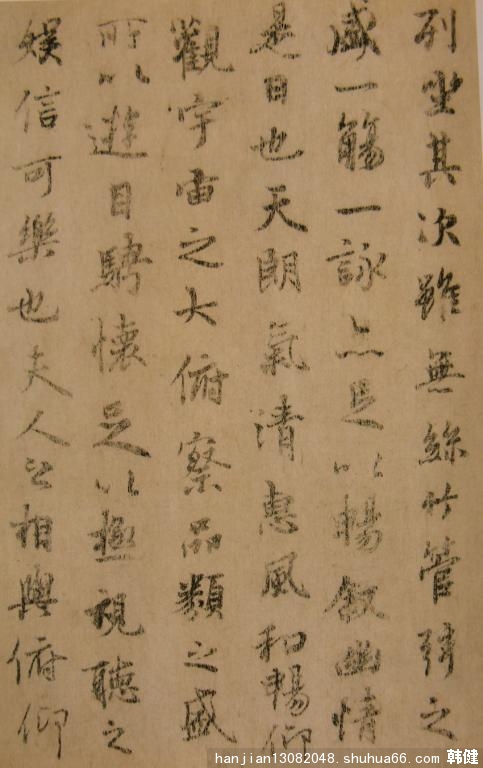 列坐其次雖無絲竹管弦之
盛一觴一詠亦足以暢敘幽情
是日也天朗氣清惠風和暢仰
觀宇宙之大俯察品類之盛
所以遊目騁懷足以極視聽之
娛信可樂也夫人之相與俯仰
hanjian13082048.shuhua66.com 韩健